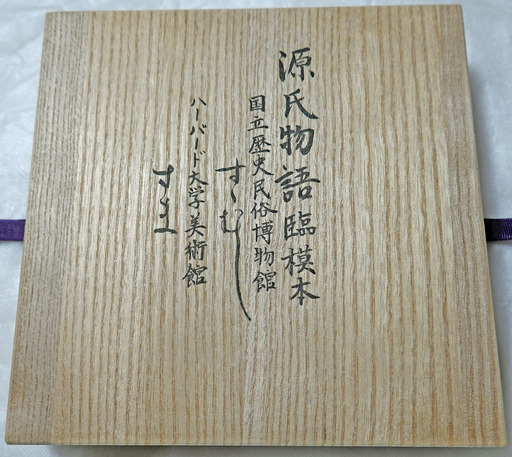 源氏物語臨模本
国立歴史民俗博物館
すゞむし
ハーバード大学美術館
すま